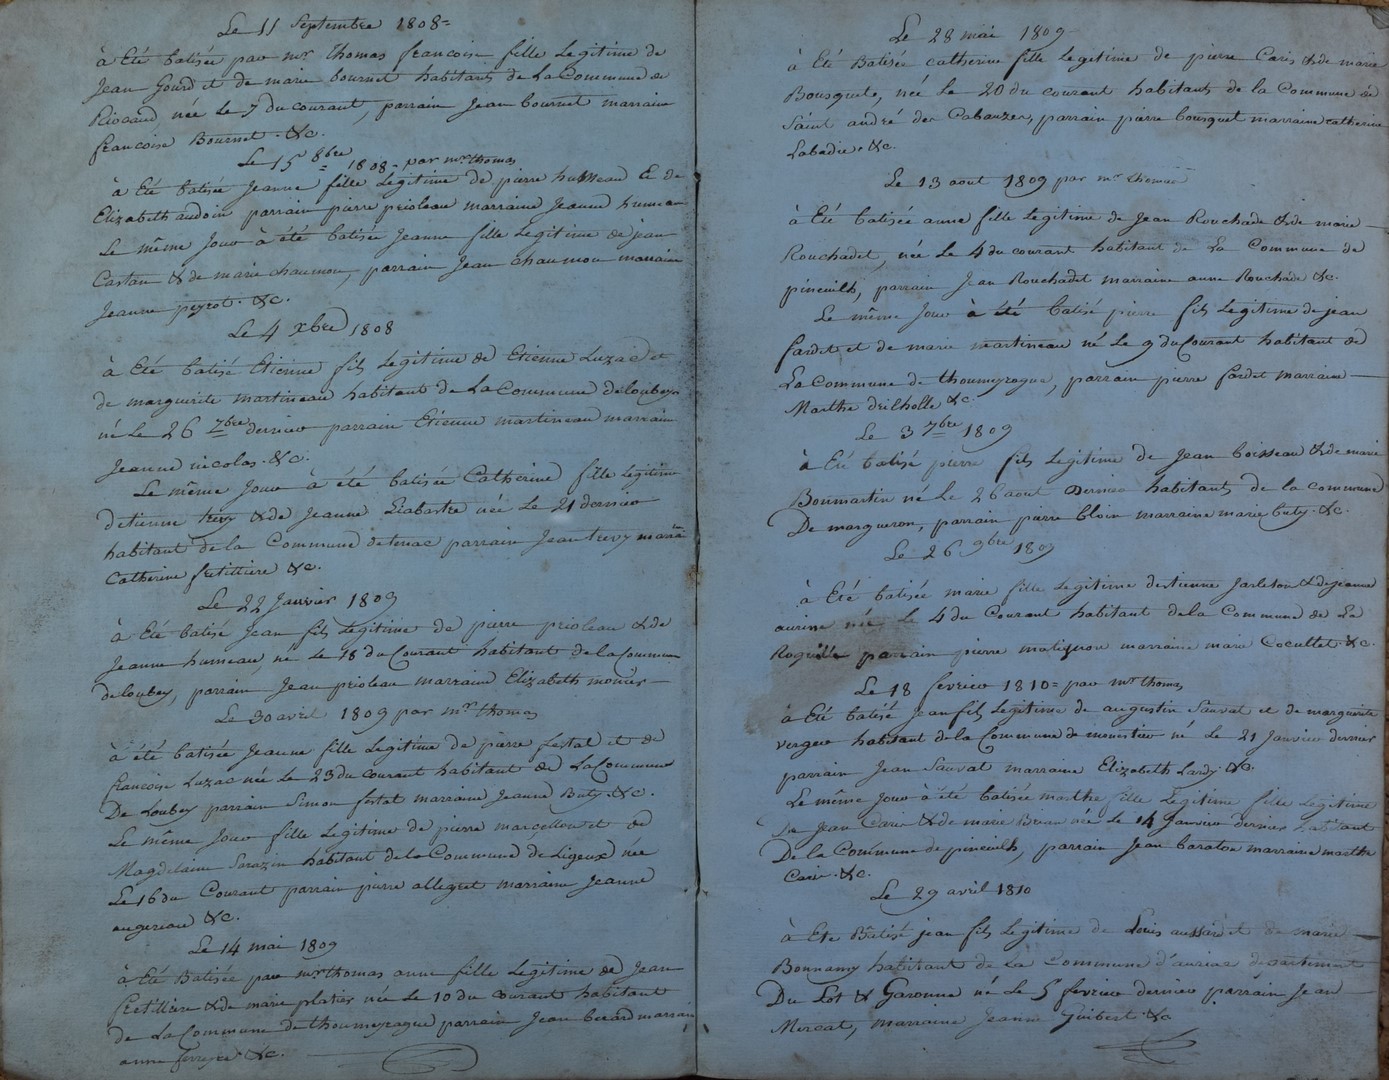 Le 11 Septembre 1808=
à Eté batisée par mr thomas francoise fille Legitime de
Jean Gourd et de marie bournet habitants de La Commune de
Riocaud née Le 7 du courant, parrain Jean bournet marraine
francoise Bournet &c.
Le 15 8bre 1808= par mr thomas
à Eté batisée Jeanne fille Legitime de pierre humeau Et de
Elizabeth audoin parrain pierre prioleau marraine Jeanne humeau
Le même Jour à été batisée Jeanne fille Legitime de jean
Castan & de marie chaumon, parrain Jean chaumon marraine
Jeanne peyrot. &c.
Le 4 xbre 1808
à Eté batisé Etienne fils Legitime de Etienne Luzac et
de marguerite martineau habitant de La Commune de loubeys
né Le 26 7bre dernier parrain Etienne martineau marraine
Jeanne nicolas. &c.
Le même Jour à été batisée Catherine fille legitime
detienne trevy & de Jeanne née Le 21 dernier
habitant de la Commune parrain Jean trevy marine
Catherine fretilliere &c.
Le 22 Janvier 1809
à Eté batisé Jean fils Legitime de pierre prioleau & de
Jeanne humeau, né Le 18 du Courant habitant de la Commune
de loubey, parrain Jean prioleau marraine Elizabeth monier
Le 30 avril 1809 par mr thomas
à été batisée Jeanne fille Legitime de pierre festal et de
francoise Luzac née Le 23 du courant habitant de La Commune
De Loubey parrain Simon festal marraine Jeanne Buty. &c.
Le même Jour fille Legitime de pierre marcellon et de
Magdelaine Sarazin habitant de la Commune de Ligeux née
Le 16 du Courant parrain pierre allegret marraine Jeanne
augereau &c.
Le 14 mai 1809
à Eté Batisée par mr thomas anne fille Legitime de Jean
fretilliere & de marie platier née Le 10 du courant habitant
de La Commune de thoumeyrague parrain Jean berard marraine
anne &c.
Le 28 mai 1809
à Eté Batisée catherine fille Legitime de pierre Caris & de marie
Bousquete, née Le 20 du courant habitants de la Commune de
Saint andré des Cabauzes, parrain pierre bousquet marraine catherine
Labadie. &c.
Le 13 aout 1809 par mr thomas
à Eté batisée anne fille Legitime de Jean Rouchade & de marie
Rouchadet, née Le 4 du courant habitant de La Commune de
pineuilh, parrain Jean Rouchadet marraine anne Rouchade &c.
Le même Jour à été batisé pierre fils Legitime de jean
fardet et de marie martineau né Le 9 du Courant habitant de
La Commune de thoumeyrague, parrain pierre fardet marraine
Marthe drilholle &c.
Le 3 7bre 1809
à Eté batisé pierre fils Legitime de Jean boisseau & de marie
Bonmartin né Le 26 aout Dernier habitants de la commune
De margueron, parrain pierre bloin marraine marie buty. &c.
Le 26 9bre 1809
à Eté batisée marie fille Legitime destienne Jarleton & dejeanne
aurine née Le 4 du Courant habitant dela Commune de La
Roquille parrain pierre malignon marraine marie Cocullet. &c.
Le 18 fevrier 1810= par mr thomas
à Eté batisé jean fils Legitime de augustin Sauvat et de marguerite
verger habitant de la Commune de monestier né Le 21 Janvier dernier
parrain Jean Sauvat marraine Elizabeth Lardy. &c.
Le même Jour à été batisée marthe fille Legitime fille Legitime
de Jean Caris & de marie Brun née Le 14 Janvier dernier habitant
De la Commune de pineuilh, parrain Jean baraton marraine marthe
Caris. &c.
Le 29 avril 1810
à Ete Bâtisé jean fils Legitime de Louis aussard et de marie
Bonnamy habitant de La Commune d'auriac departement
Du Lot & Garonne né Le 5 fevrier dernier parrain Jean
Mercat, marraine Jeanne Guibert. &c